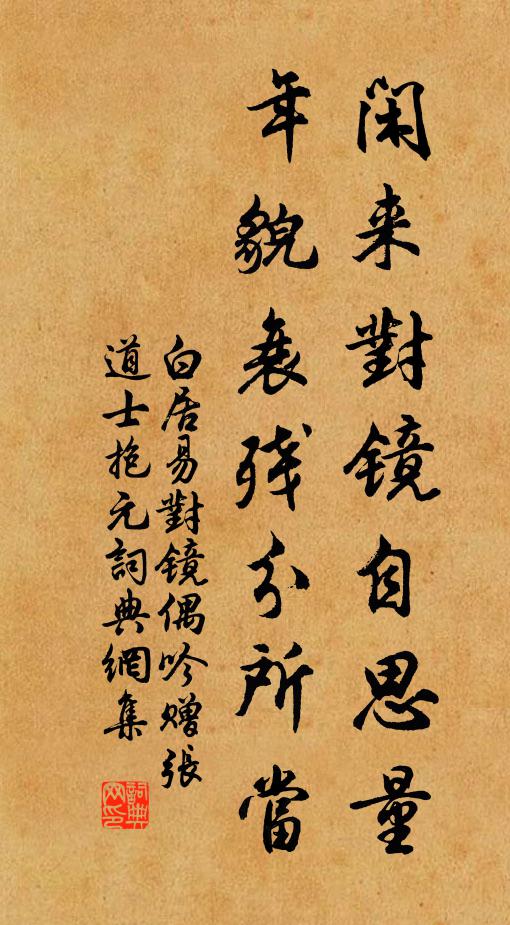 闲来對镜自思量
年貌衰残分所當
白居易對镜偶吟赠張
道士抱元詞典網集
詞典网印